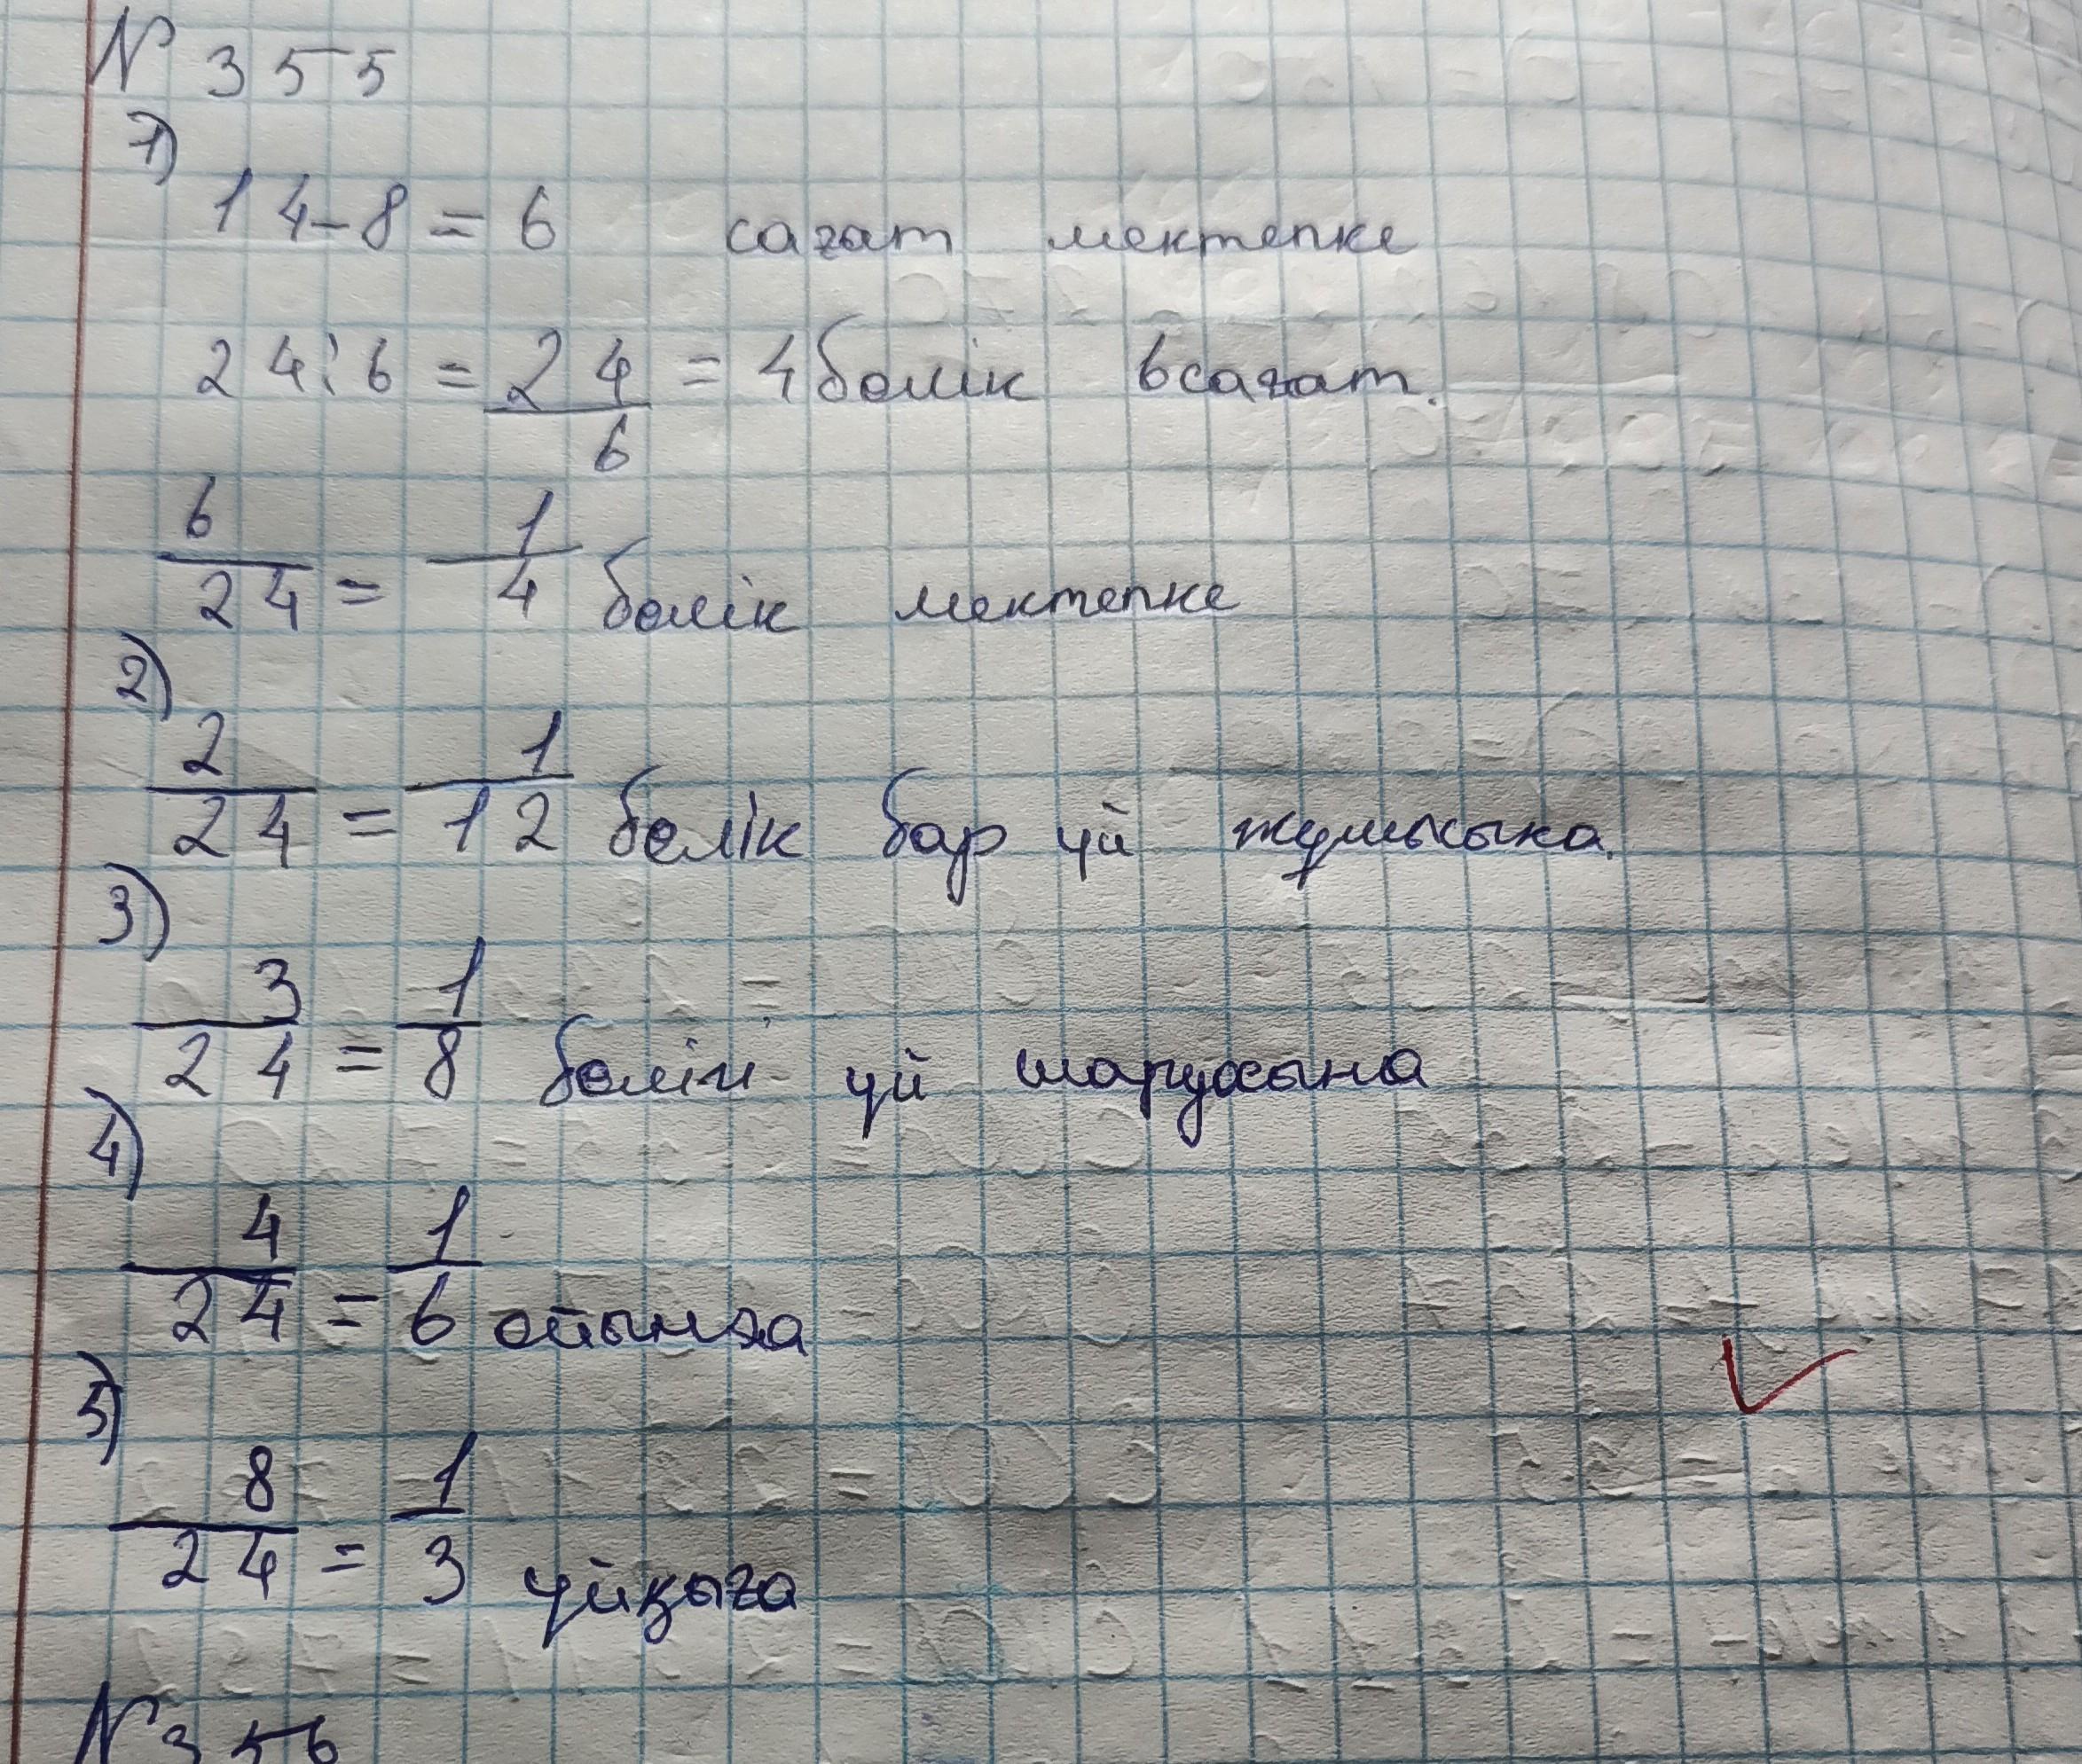 N 355
1)
14-8=6 сағат мектепке
24:6=24/6=4бөлік 6сағат.
6/24=1/4 бөлік мектепке
2)
2/24=1/12 бөлік бар үй жұмысына.
3)
3/24=1/8 бөлігі үй шаруасына
4)
4/24=1/6 ойынға
5)
8/24=1/3 ұйқыға
N 356